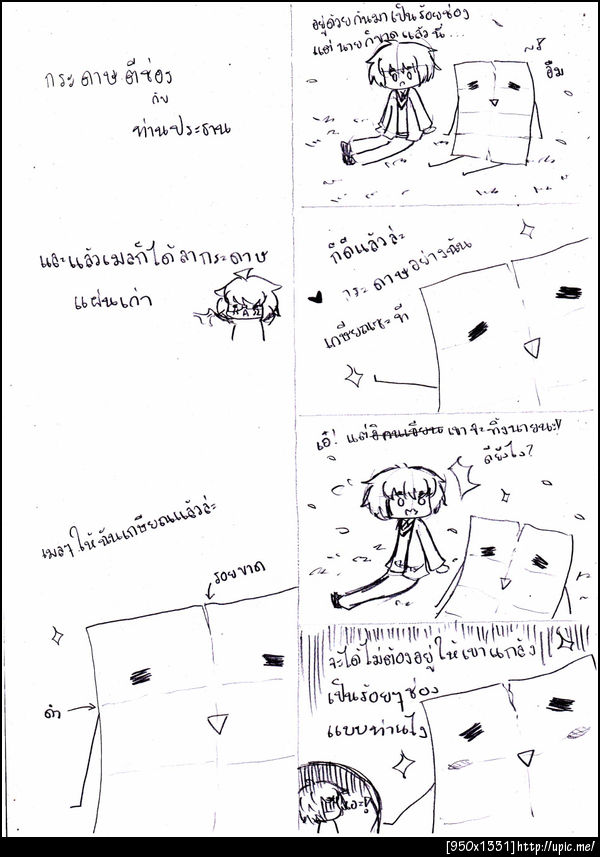 กระดาษตีช่อง
กับ
ท่านประธาน
และแล้วเมลก็ได้ลากระดาษ
แผ่นเก่า
เมลๆ ให้ฉันเกษียณแล้วล่ะ
รอยขาด
ดำ
อยู่ด้วยกันมาเป็นร้อยช่อง
แต่นายก็ขาดแล้วนี่...
อืม
ก็ดีแล้วล่ะ
กระดาษอย่างฉัน
เกษียณซะที
เอ๊! แต่ เขาจะทิ้งนายนะ!
ดียังไง?
จะได้ไม่ต้องอยู่ให้เขาแกล้ง
เป็นร้อยๆช่อง
แบบท่านไง
[950x1331]http://upic.me/